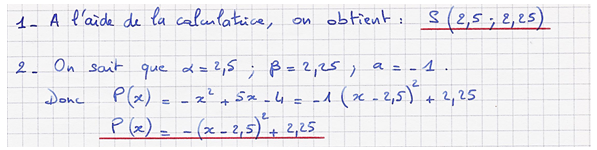 1- A l'aide de la calculatrice, on obtient : S (2,5 ; 2,25)
2- On sait que α = 2,5 ; β = 2,25 ; a = -1.
Donc P(x) = -x² + 5x - 4 = -1 (x - 2,5)² + 2,25
P(x) = -(x - 2,5)² + 2,25